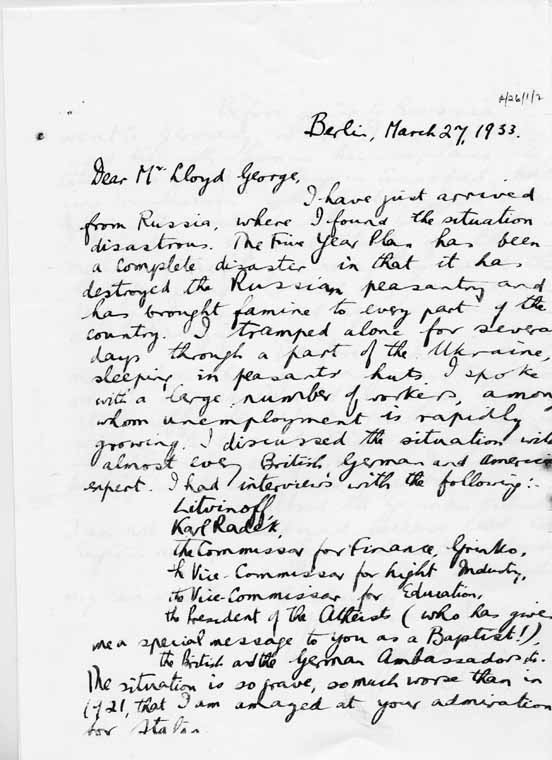 A/26/1/2
Berlin, March 27, 1933.
Dear Mr Lloyd George,
I have just arrived
from Russia, where I found the situation
disastrous. The Five Year Plan has been
a complete disaster in that it has
destroyed the Russian peasantry and
has brought famine to every part of the
country. I tramped alone for severa
days through a part of the Ukraine,
sleeping in peasants' huts. I spoke
with a large number of workers, amon
whom unemployment is rapidly
growing. I discussed the situation with
almost every British, German and America
expert. I had interviews with the following:-
Litvinoff
Karl Radek,
the Commissar for Finance, Grinko,
the Vice-Commissar for Light Industry,
the Vice-Commissar for Education,
the President of the Atheists (who has give
me a special message to you as a Baptist!),
the British and the German Ambassadors etc.
The situation is so grave, so much worse than in
1921, that I am amazed at your admiration
for Stalin.